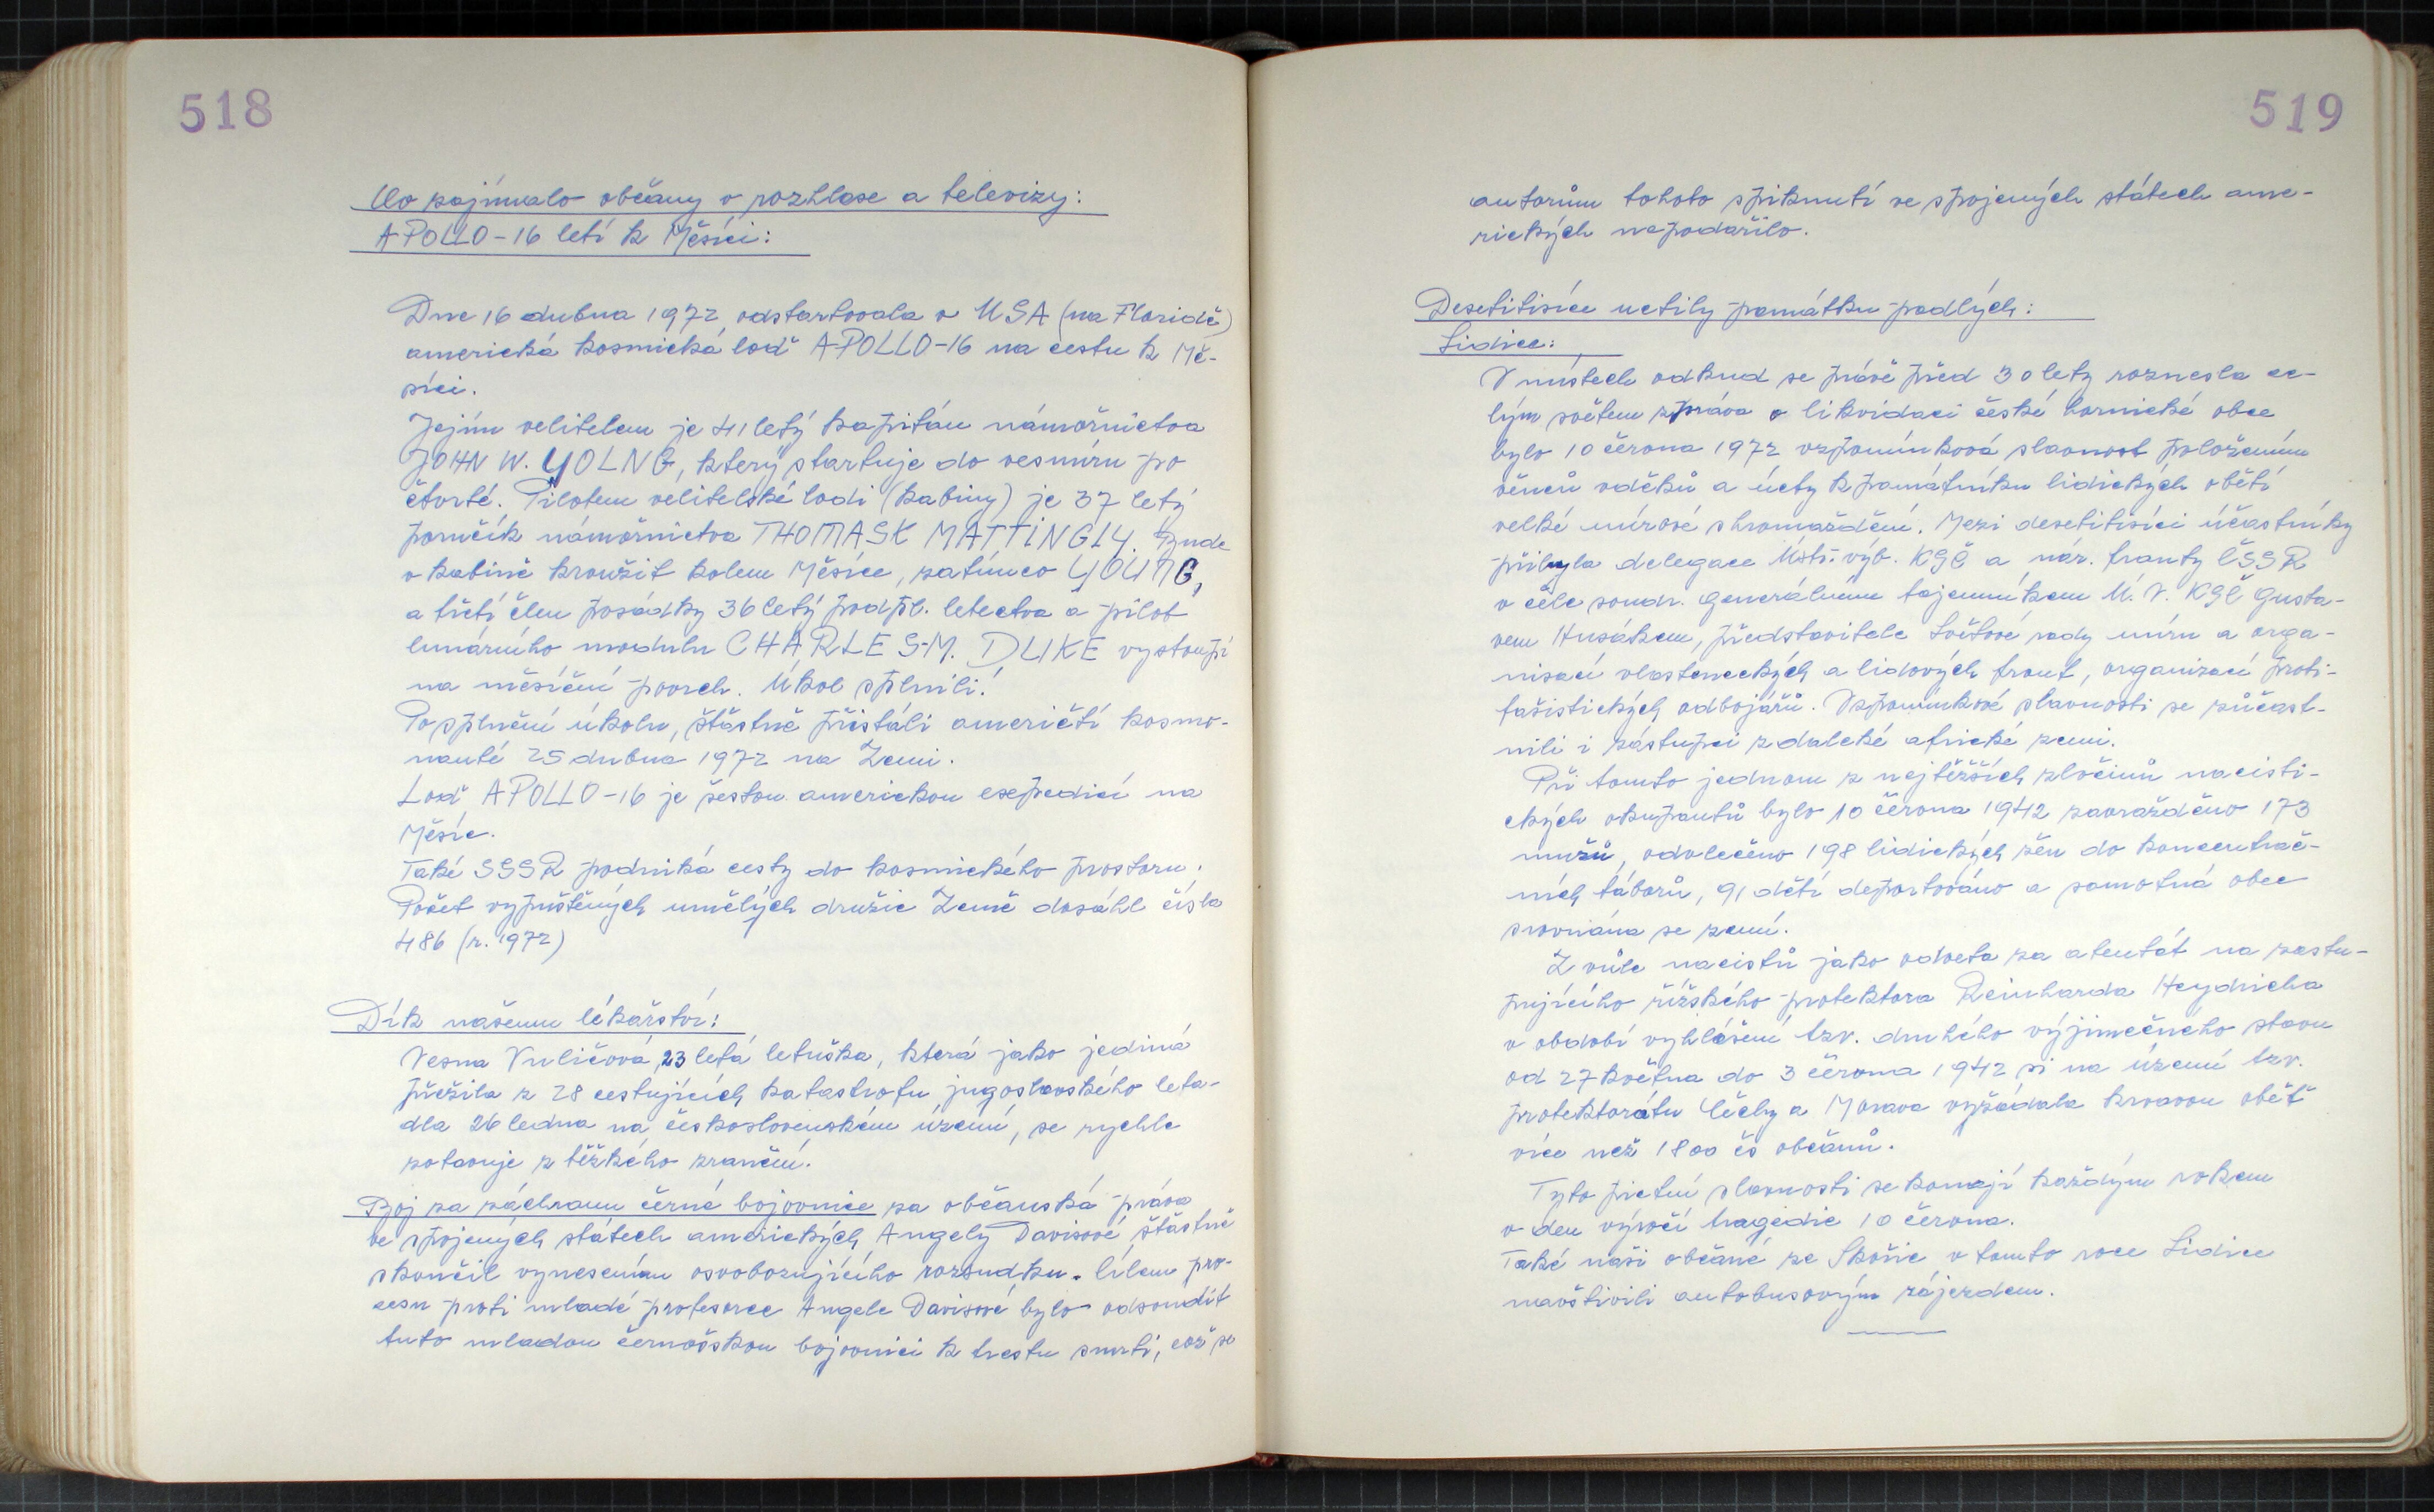 518
Co zajímalo občany v rozhlase a televizy:
APOLLO-16 letí k Měsíci:
Dne 16 dubna 1972 odstartovala v USA (na Floridě)
americká kosmická loď APOLLO-16 na cestu k Mě-
síci.
Jejím velitelem je 41 letý kapitán námořnictva
JOHN W. YOLNG, který startuje do vesmíru po
čtvrté. Pilotem velitelské lodi (kabiny) je 37 letý
poručík námořnictva THOMASK MATTINGLY. Bude
v kabině kroužit kolem Měsíce, zatímco YOUNG,
a třetí člen posádky 36 letý podpl. letectva a pilot
lunárního modulu CHARLES-M. DUKE vystoupí
na měsíční povrch. Úkol splnili!
Po splnění úkolu, štastně přistáli američtí kosmo-
nauté 25 dubna 1972 na Zemi.
Loď APOLLO-16 je šestou americkou exepedicí na
Měsíc.
Také SSSR podniká cesty do kosmického prostoru.
Počet vypuštěných umělých družic Země dosáhl čísla
486 (r. 1972)
Dík našemu lékařství:
Vesna Vuličová, 23 letá letuška, která jako jediná
přežila z 28 cestujících katastrofu jugoslavského leta-
dla 26 ledna na československém území, se rychle
zotavuje z těžkého zranění.
Boj za záchranu černé bojovnice za občanská práva
ve spojených státech amerických, Angely Davisové štastně
skončil vynesením osvobozujícího rozsudku. Cílem pro-
cesu proti mladé profesorce Angele Davisové bylo odsoudit
tuto mladou černošskou bojovnici k trestu smrti, což se
519
autorům tohoto spiknutí ve spojených státech ame-
rických nepodařilo.
Desetitisíce uctily památku padlých:
Lidice:
V místech odkud se právě před 30 lety roznesla ce-
lým světem zpráva o likvidaci české hornické obce
bylo 10 června 1972 vzpomínková slavnost položením
věnců vděků a úcty k památníku lidických obětí
velké mírové shromaždění. Mezi desetitisíci účastníky
přibyla delegace Ústř. výb. KSČ a nár. fronty ČSSR
v čele soudr. generálním tajemníkem Ú. V. KSČ Gusta-
vem Husákem, představitele Světové rady míru a orga-
nisací vlasteneckých a lidových front, organisací proti-
fašistických odbojářů. Vzpomínkové slavnosti se zúčast-
nili i zástupci z daleké africké zemi.
Při tomto jednom z nejtěžších zločinů nacisti-
ckých okupantů bylo 10 června 1942 zavražděno 173
mužů, odvlečeno 198 lidických žen do koncentrač-
ních táborů, 91 dětí deportováno a samotná obec
srovnána se zemí.
Zvůle nacistů jako odveta za atentát na zastu-
pujícího říšského protektora Reinharda Heydricha
v období vyhlášení tzv. druhého výjimečného stavu
od 27 května do 3 června 1942 si na území tzv.
protektorátu Čechy a Morava vyžádala krvavou obět
více než 1800 čs občanů.
Tyto pietní slavnosti se konají každým rokem
v den výročí tragédie 10 června.
Také naši občané ze Skořic v tomto roce Lidice
navštívili autobusovým zájezdem.